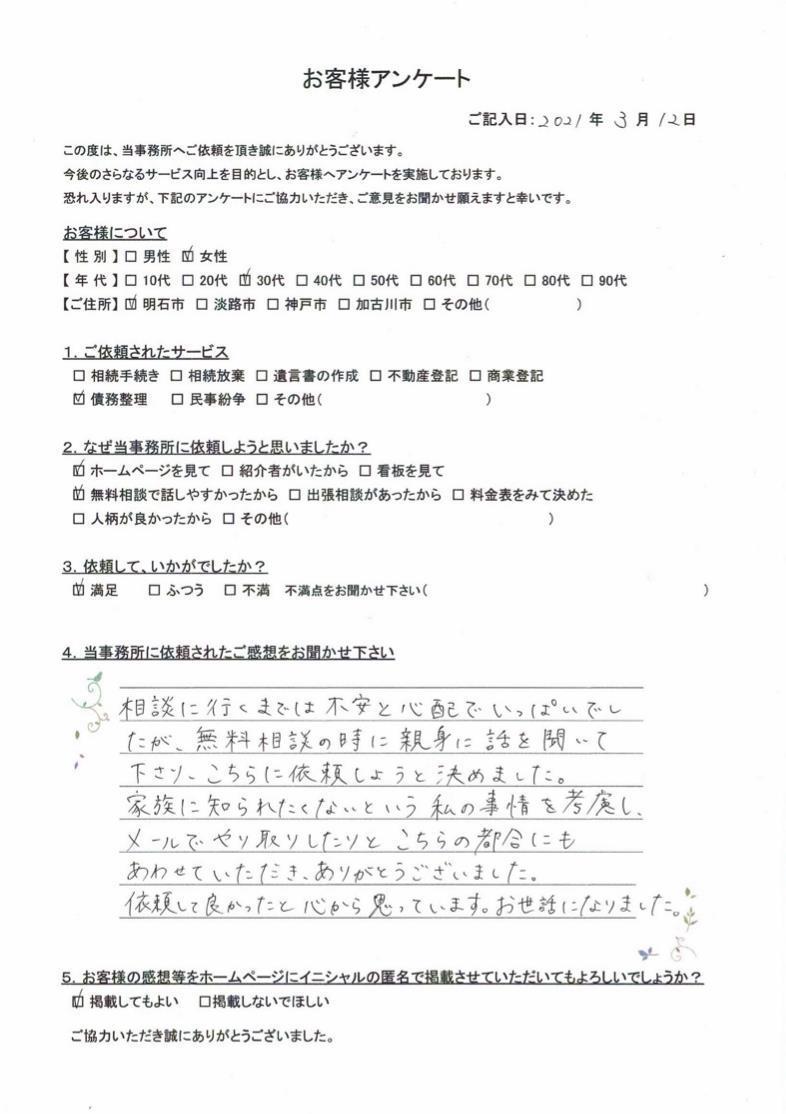 お客様アンケート
ご記入日:2021年 3月 12日
この度は、当事務所へご依頼を頂き誠にありがとうございます。
今後のさらなるサービス向上を目的とし、お客様へアンケートを実施しております。
恐れ入りますが、下記のアンケートにご協力いただき、ご意見をお聞かせ願えますと幸いです。
お客様について
【 性 別 】□ 男性 ☑ 女性
【 年 代 】□ 10代 □ 20代 ☑ 30代 □ 40代 □ 50代 □ 60代 □ 70代 □ 80代 □ 90代
【ご住所】☑ 明石市 □ 淡路市 □ 神戸市 □ 加古川市 □ その他( )
1. ご依頼されたサービス
□ 相続手続き □ 相続放棄 □ 遺言書の作成 □ 不動産登記 □ 商業登記
☑ 債務整理 □ 民事紛争 □ その他( )
2. なぜ当事務所に依頼しようと思いましたか?
☑ ホームページを見て □ 紹介者がいたから □ 看板を見て
☑ 無料相談で話しやすかったから □ 出張相談があったから □ 料金表をみて決めた
□ 人柄が良かったから □ その他( )
3. 依頼して、いかがでしたか?
☑ 満足 □ ふつう □ 不満 不満点をお聞かせ下さい( )
4. 当事務所に依頼されたご感想をお聞かせ下さい
相談に行くまでは不安と心配でいっぱいでし
たが、無料相談の時に親身に話を聞いて
下さり、こちらに依頼しようと決めました。
家族に知られたくないという私の事情を考慮し、
メールでやり取りしたりとこちらの都合にも
あわせていただき、ありがとうございました。
依頼して良かったと心から思っています。お世話になりました。
5. お客様の感想等をホームページにイニシャルの匿名で掲載させていただいてもよろしいでしょうか?
☑ 掲載してもよい □掲載しないでほしい
ご協力いただき誠にありがとうございました。